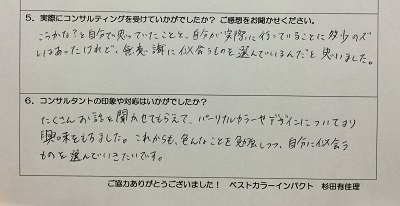 5. 実際にコンサルティングを受けていかがでしたか？ ご感想をお聞かせください。
こうかな？と自分で思っていたことと、自分が実際に行っていることに多少のズレ
はあったけれど、無意識に似合うものを選んでいるんだと思いました。
6. コンサルタントの印象や対応はいかがでしたか？
たくさんお話を聞かせてもらえて、パーソナルカラーやデザインについてより
興味をもちました。これからも、色んなことを勉強しつつ、自分に似合う
ものを選んでいきたいです。
ご協力ありがとうございました！ ベストカラーインパクト 杉田有佳理